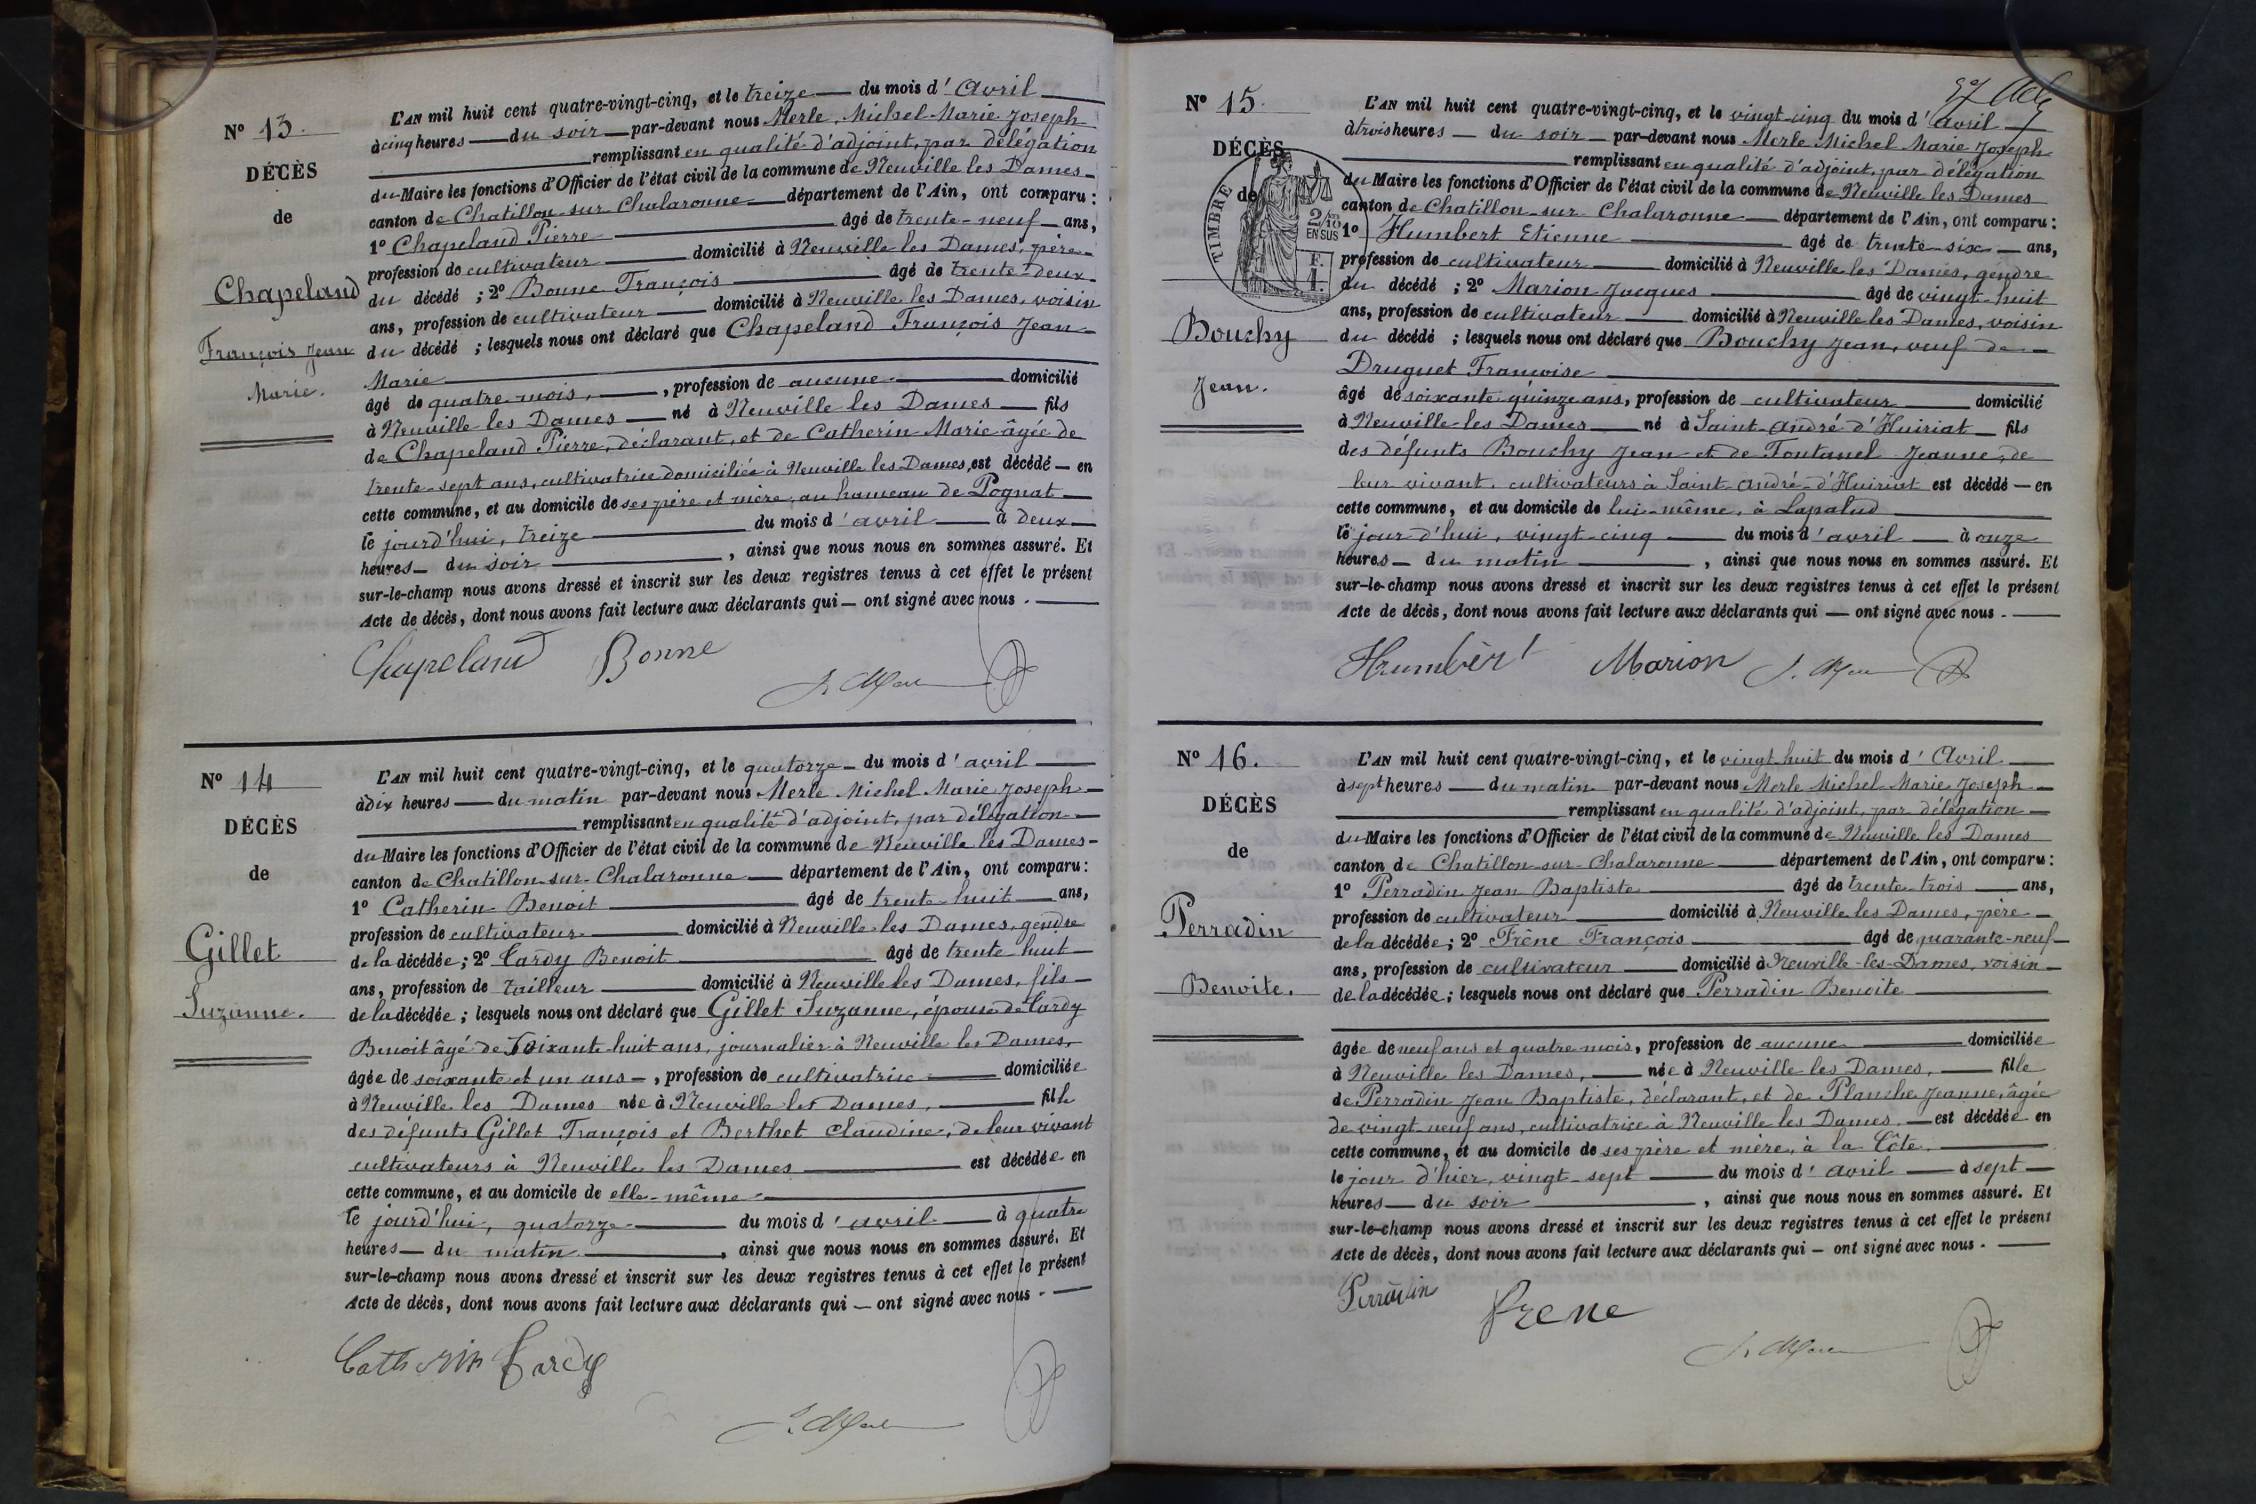 N° 13.
DÉCÈS
de
Chapeland
François Jean
Marie.
L'AN mil huit cent quatre-vingt-cinq, et le treize du mois d'Avril
à cinq heures du soir par-devant nous Merle, Michel-Marie Joseph
remplissant en qualité d'adjoint, par délégation
du Maire les fonctions d'Officier de l'état civil de la commune de Neuville les Dames
canton de Chatillon-sur-Chalaronne département de l'Ain, ont comparu :
1° Chapeland Pierre âgé de trente-neuf ans,
profession de cultivateur domicilié à Neuville les Dames, père
du décédé ; 2° Bonne François âgé de trente-deux
ans, profession de cultivateur domicilié à Neuville les Dames, voisin
du décédé ; lesquels nous ont déclaré que Chapeland François Jean
Marie
âgé de quatre mois, , profession de aucune domicilié
à Neuville les Dames né à Neuville les Dames fils
de Chapeland Pierre, déclarant, et de Catherin Marie âgée de
trente-sept ans, cultivatrice domiciliée à Neuville les Dames, est décédé en
cette commune, et au domicile de ses père et mère, au hameau de Pognat
le jourd'hui, treize du mois d'avril à deux
heures du soir , ainsi que nous nous en sommes assuré. Et
sur-le-champ nous avons dressé et inscrit sur les deux registres tenus à cet effet le présent
Acte de décès, dont nous avons fait lecture aux déclarants qui — ont signé avec nous.
Chapeland Bonne
N° 14
DÉCÈS
de
Gillet
Suzanne.
L'AN mil huit cent quatre-vingt-cinq, et le quatorze du mois d'avril
à dix heures du matin par-devant nous Merle Michel Marie Joseph
remplissant en qualité d'adjoint, par délégation
du Maire les fonctions d'Officier de l'état civil de la commune de Neuville les Dames
canton de Chatillon-sur-Chalaronne département de l'Ain, ont comparu :
1° Catherin Benoit âgé de trente-huit ans,
profession de cultivateur domicilié à Neuville les Dames, gendre
de la décédée ; 2° Cardy Benoit âgé de trente-huit
ans, profession de tailleur domicilié à Neuville les Dames, fils
de la décédée ; lesquels nous ont déclaré que Gillet Suzanne, épouse de Cardy
Benoit âgé de soixante-huit ans, journalier à Neuville les Dames,
âgée de soixante et un ans , profession de cultivatrice domiciliée
à Neuville les Dames née à Neuville les Dames, fille
des défunts Gillet François et Berthet Claudine, de leur vivant
cultivateurs à Neuville les Dames est décédée en
cette commune, et au domicile de elle-même
le jourd'hui, quatorze du mois d'avril à quatre
heures du matin , ainsi que nous nous en sommes assuré. Et
sur-le-champ nous avons dressé et inscrit sur les deux registres tenus à cet effet le présent
Acte de décès, dont nous avons fait lecture aux déclarants qui — ont signé avec nous.
Catherin Cardy
N° 15.
DÉCÈS
de
TIMBRE
2/10
EN SUS
Bouchy
Jean.
L'AN mil huit cent quatre-vingt-cinq, et le vingt-cinq du mois d'avril
à trois heures du soir par-devant nous Merle Michel Marie Joseph
remplissant en qualité d'adjoint, par délégation
du Maire les fonctions d'Officier de l'état civil de la commune de Neuville les Dames
canton de Chatillon-sur-Chalaronne département de l'Ain, ont comparu :
1° Humbert Etienne âgé de trente-six ans,
profession de cultivateur domicilié à Neuville les Dames, gendre
du décédé ; 2° Marion Jacques âgé de vingt-huit
ans, profession de cultivateur domicilié à Neuville les Dames, voisin
du décédé ; lesquels nous ont déclaré que Bouchy Jean, veuf de
Druguet Françoise
âgé de soixante quinze ans, profession de cultivateur domicilié
à Neuville les Dames né à Saint-André-d'Huiriat fils
des défunts Bouchy Jean et de Fontanel Jeanne, de
leur vivant, cultivateurs à Saint-André-d'Huiriat est décédé en
cette commune, et au domicile de lui-même, à Lapalud
le jour d'hui, vingt-cinq du mois d'avril à onze
heures du matin , ainsi que nous nous en sommes assuré. Et
sur-le-champ nous avons dressé et inscrit sur les deux registres tenus à cet effet le présent
Acte de décès, dont nous avons fait lecture aux déclarants qui — ont signé avec nous.
Humbert Marion
N° 16.
DÉCÈS
de
Perradin
Benoite.
L'AN mil huit cent quatre-vingt-cinq, et le vingt huit du mois d'Avril
à sept heures du matin par-devant nous Merle Michel Marie Joseph
remplissant en qualité d'adjoint, par délégation
du Maire les fonctions d'Officier de l'état civil de la commune de Neuville les Dames
canton de Chatillon-sur-Chalaronne département de l'Ain, ont comparu :
1° Perradin Jean Baptiste âgé de trente-trois ans,
profession de cultivateur domicilié à Neuville les Dames, père
de la décédée ; 2° Frêne François âgé de quarante-neuf
ans, profession de cultivateur domicilié à Neuville-les-Dames, voisin
de la décédée ; lesquels nous ont déclaré que Perradin Benoite
âgée de neuf ans et quatre mois, profession de aucune domiciliée
à Neuville les Dames, née à Neuville les Dames, fille
de Perradin Jean Baptiste, déclarant, et de Planche Jeanne, âgée
de vingt-neuf ans, cultivatrice à Neuville les Dames, est décédée en
cette commune, et au domicile de ses père et mère, à la Côte
le jour d'hier, vingt-sept du mois d'avril à sept
heures du soir , ainsi que nous nous en sommes assuré. Et
sur-le-champ nous avons dressé et inscrit sur les deux registres tenus à cet effet le présent
Acte de décès, dont nous avons fait lecture aux déclarants qui — ont signé avec nous.
Perradin Frene